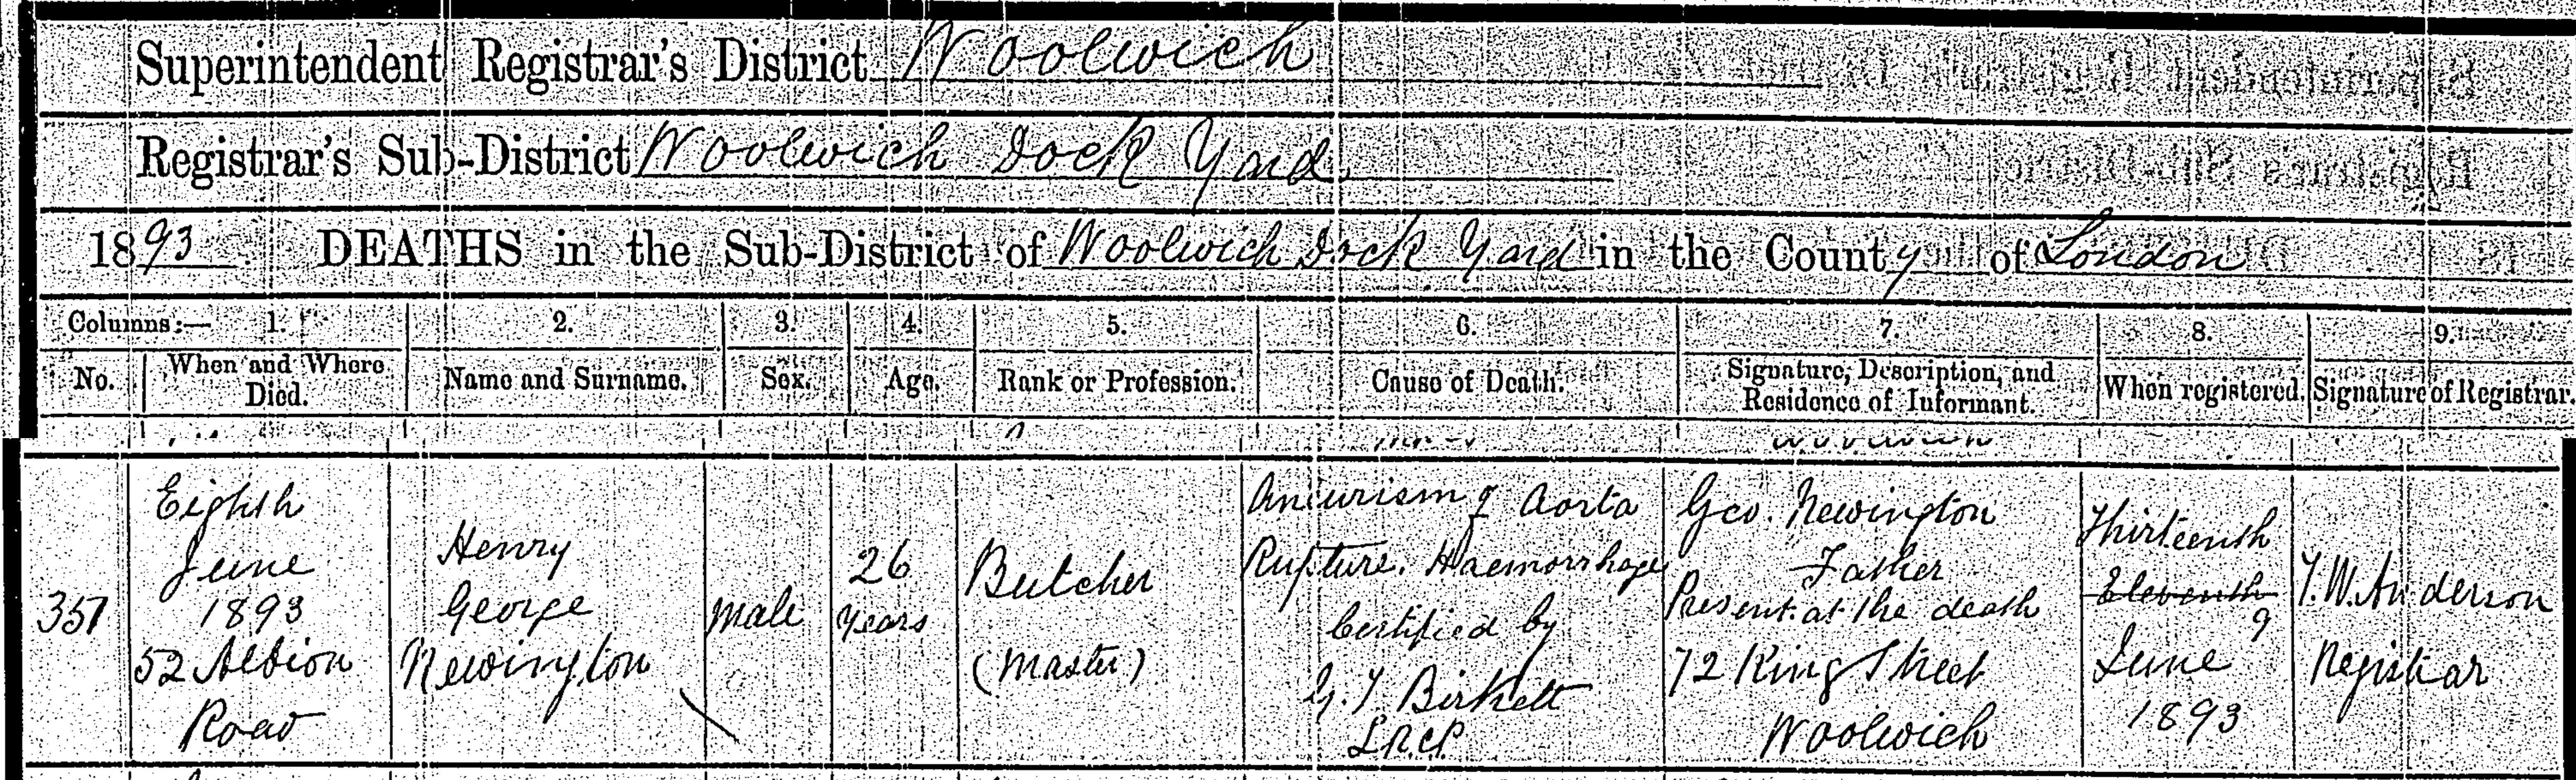 Superintendent Registrar's District Woolwich
Registrar's Sub-District Woolwich Dock Yard
1893 DEATHS in the Sub-District of Woolwich Dock Yard in the County of London
Columns:— 1. 2. 3. 4. 5. 6. 7. 8. 9.
No. When and Where Died. Name and Surname. Sex. Age. Rank or Profession. Cause of Death. Signature, Description, and Residence of Informant. When registered. Signature of Registrar.
357
Eighth
June
1893
52 Albion
Road
Henry
George
Newington
Male
26
years
Butcher
(Master)
Aneurism of Aorta
Rupture. Haemorrhage
Certified by
Birkett
LRCP
Geo. Newington
Father
Present at the death
72 King Street
Woolwich
Thirteenth
Eleventh
9
June
1893
T.W. Anderson
Registrar